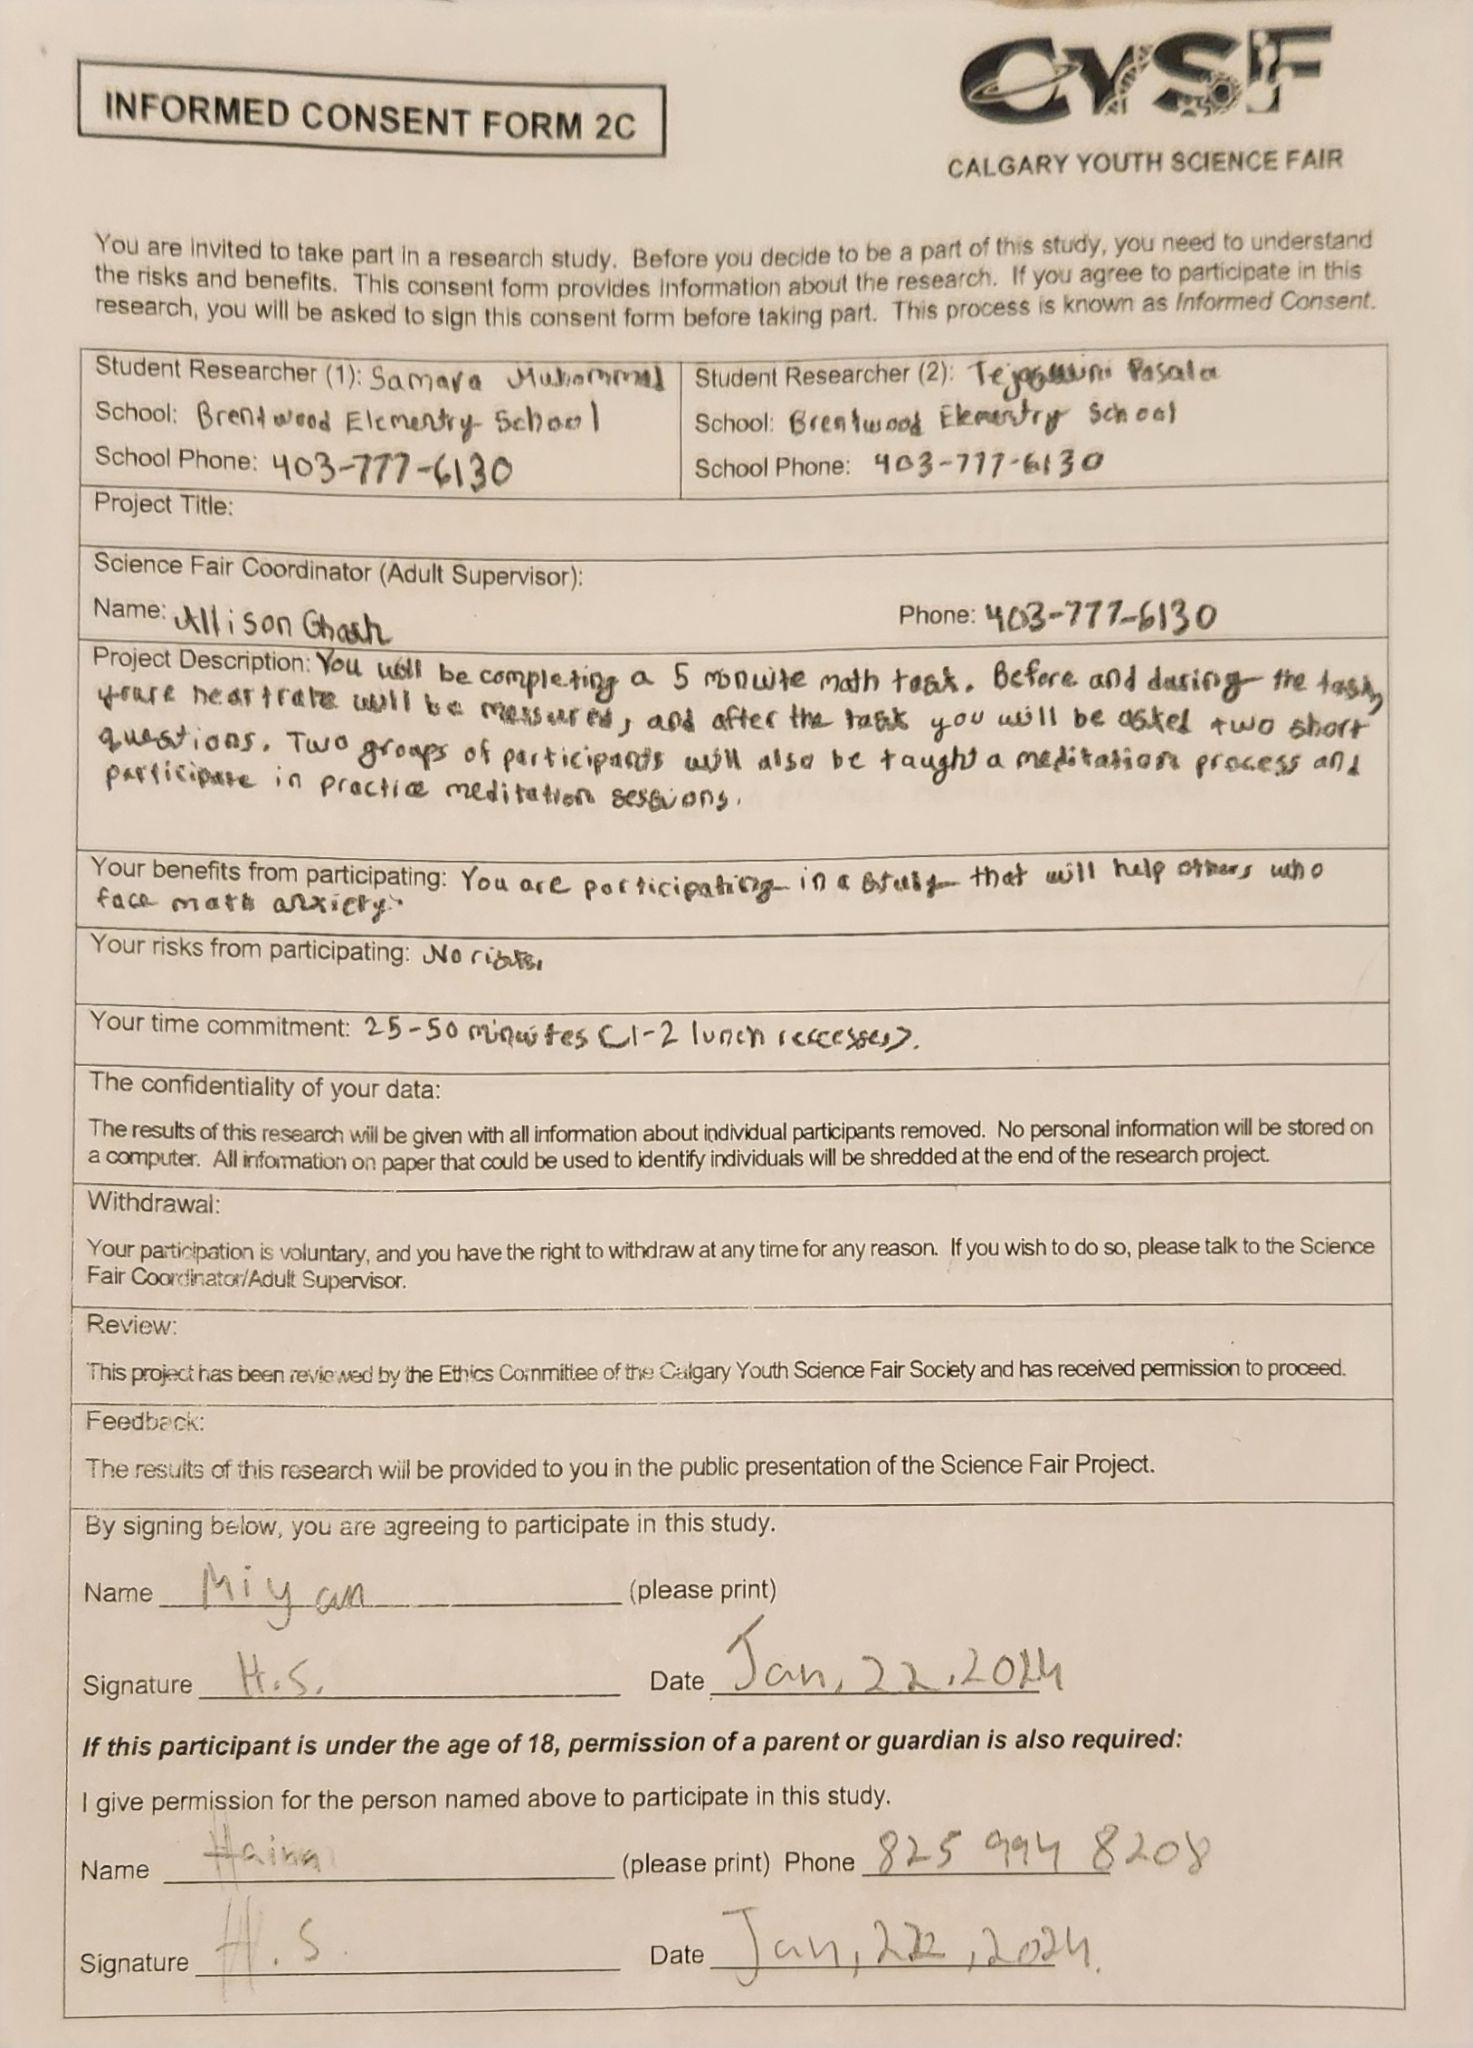 INFORMED CONSENT FORM 2C
CYSF
CALGARY YOUTH SCIENCE FAIR
You are invited to take part in a research study. Before you decide to be a part of this study, you need to understand
the risks and benefits. This consent form provides information about the research. If you agree to participate in this
research, you will be asked to sign this consent form before taking part. This process is known as Informed Consent.
Student Researcher (1): Samara Muhammad
School: Brentwood Elementry School
School Phone: 403-777-6130
Student Researcher (2): Pasala
School: Brentwood Elementry School
School Phone: 403-777-6130
Project Title:
Science Fair Coordinator (Adult Supervisor):
Name: Allison Phone: 403-777-6130
Project Description: You will be completing a 5 math task. Before and during the task,
heartrate will be and after the task you will be asked two short
questions. Two groups of participants will also be taught a meditation process and
participate in practice meditation sessions.
Your benefits from participating: You are participating in a study that will help others who
face math anxiety.
Your risks from participating: No risks.
Your time commitment: 25-50 minutes (1-2 lunch
The confidentiality of your data:
The results of this research will be given with all information about individual participants removed. No personal information will be stored on
a computer. All information on paper that could be used to identify individuals will be shredded at the end of the research project.
Withdrawal:
Your participation is voluntary, and you have the right to withdraw at any time for any reason. If you wish to do so, please talk to the Science
Fair Coordinator/Adult Supervisor.
Review:
This project has been reviewed by the Ethics Committee of the Calgary Youth Science Fair Society and has received permission to proceed.
Feedback:
The results of this research will be provided to you in the public presentation of the Science Fair Project.
By signing below, you are agreeing to participate in this study.
Name Miyan (please print)
Signature H.S. Date Jan, 22, 2024
If this participant is under the age of 18, permission of a parent or guardian is also required:
I give permission for the person named above to participate in this study.
Name (please print) Phone 825 994 8208
Signature H.S. Date Jan, 22, 2024.